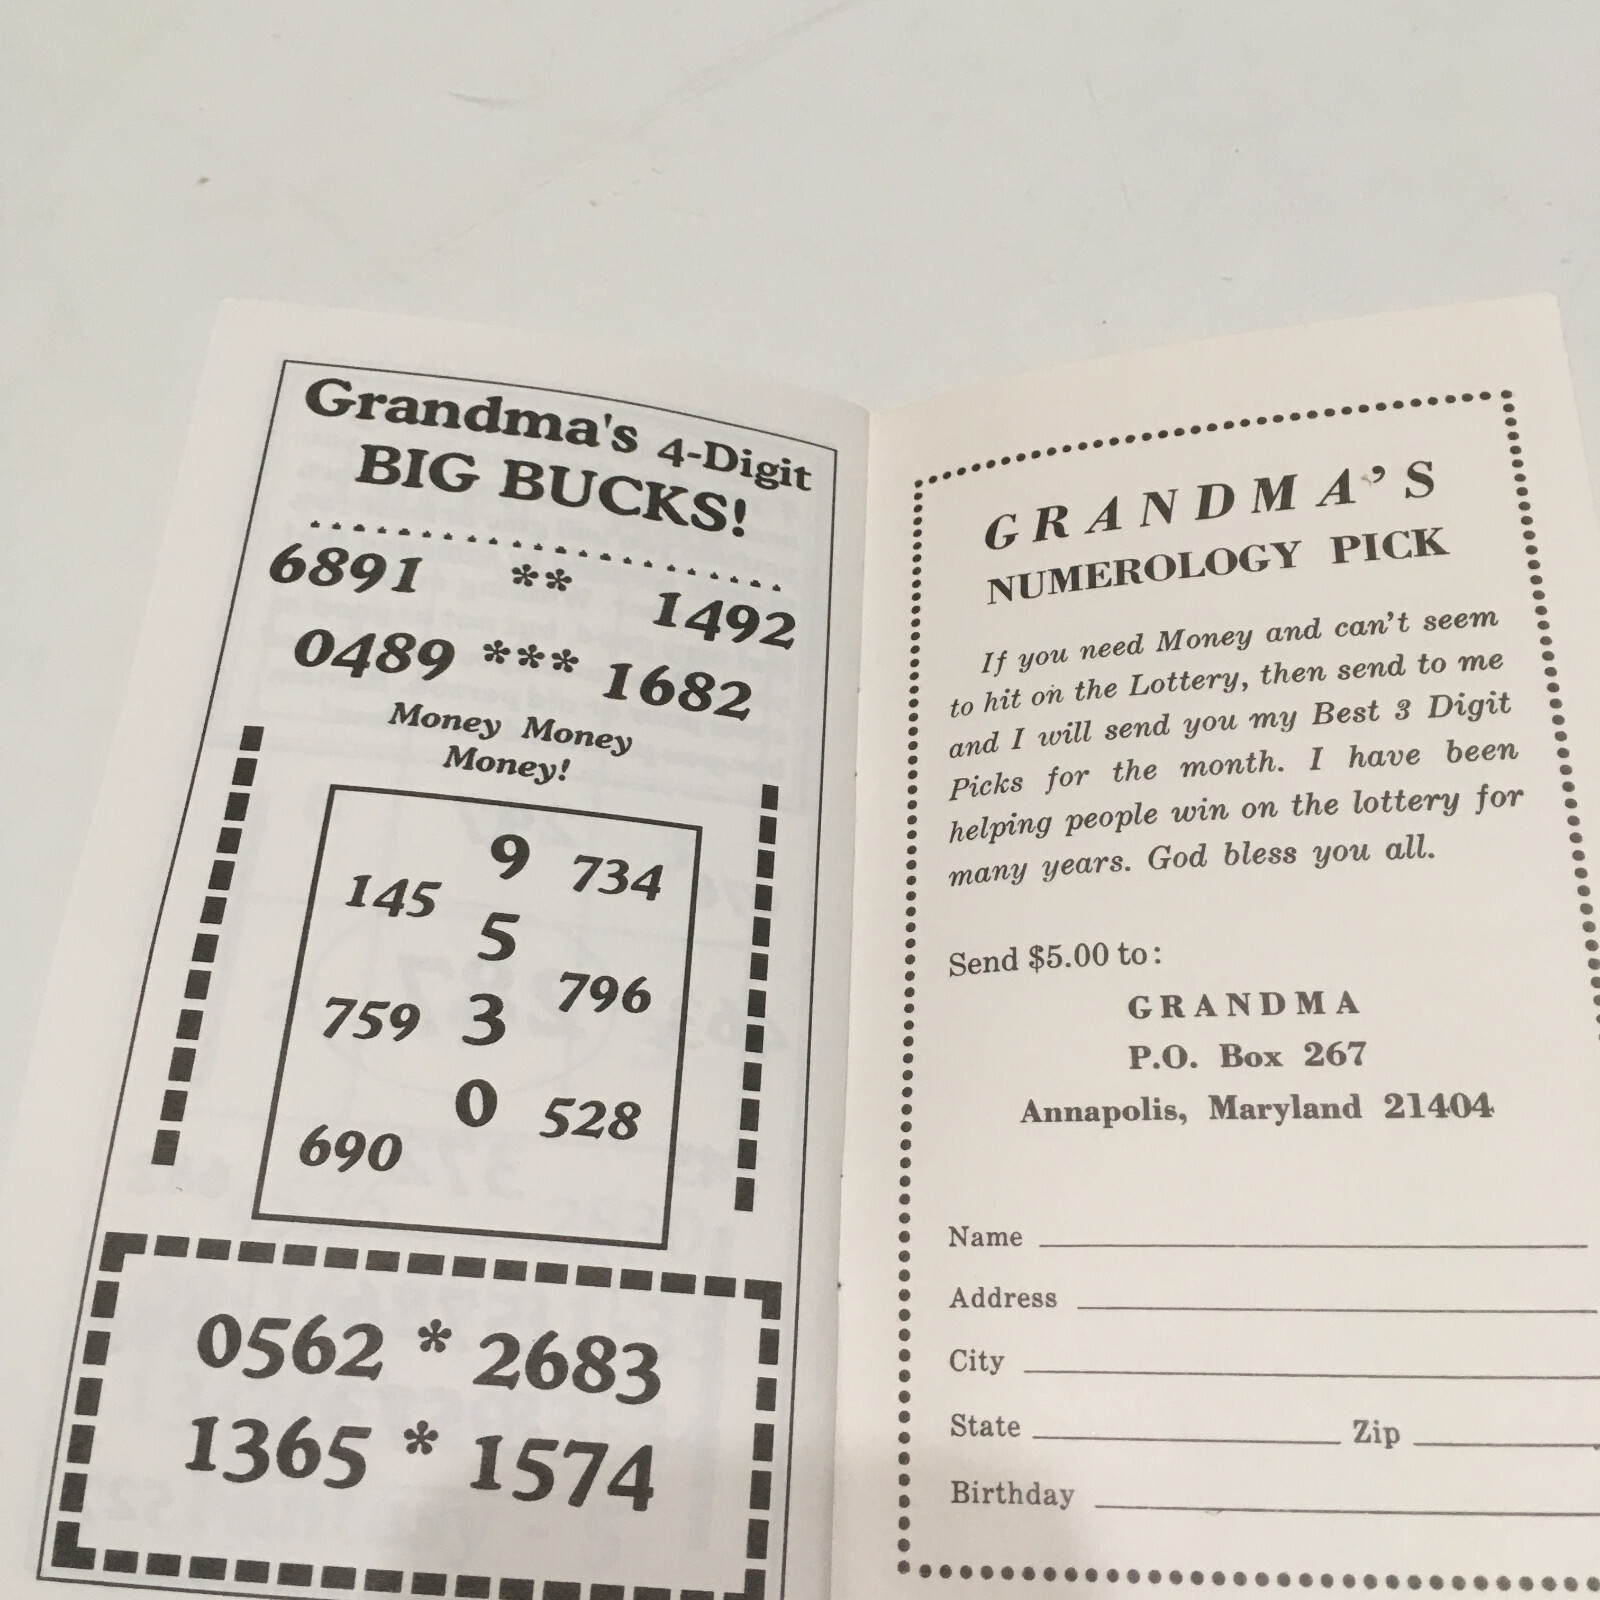 Grandma's 4-Digit
BIG BUCKS!
6891 ** 1492
0489 *** 1682
Money Money
Money!
9 734
145
5
796
759 3
0 528
690
0562 * 2683
1365 * 1574
GRANDMA'S
NUMEROLOGY PICK
If you need Money and can't seem
to hit on the Lottery, then send to me
and I will send you my Best 3 Digit
Picks for the month. I have been
helping people win on the lottery for
many years. God bless you all.
Send $5.00 to:
GRANDMA
P.O. Box 267
Annapolis, Maryland 21404
Name
Address
City
State Zip
Birthday